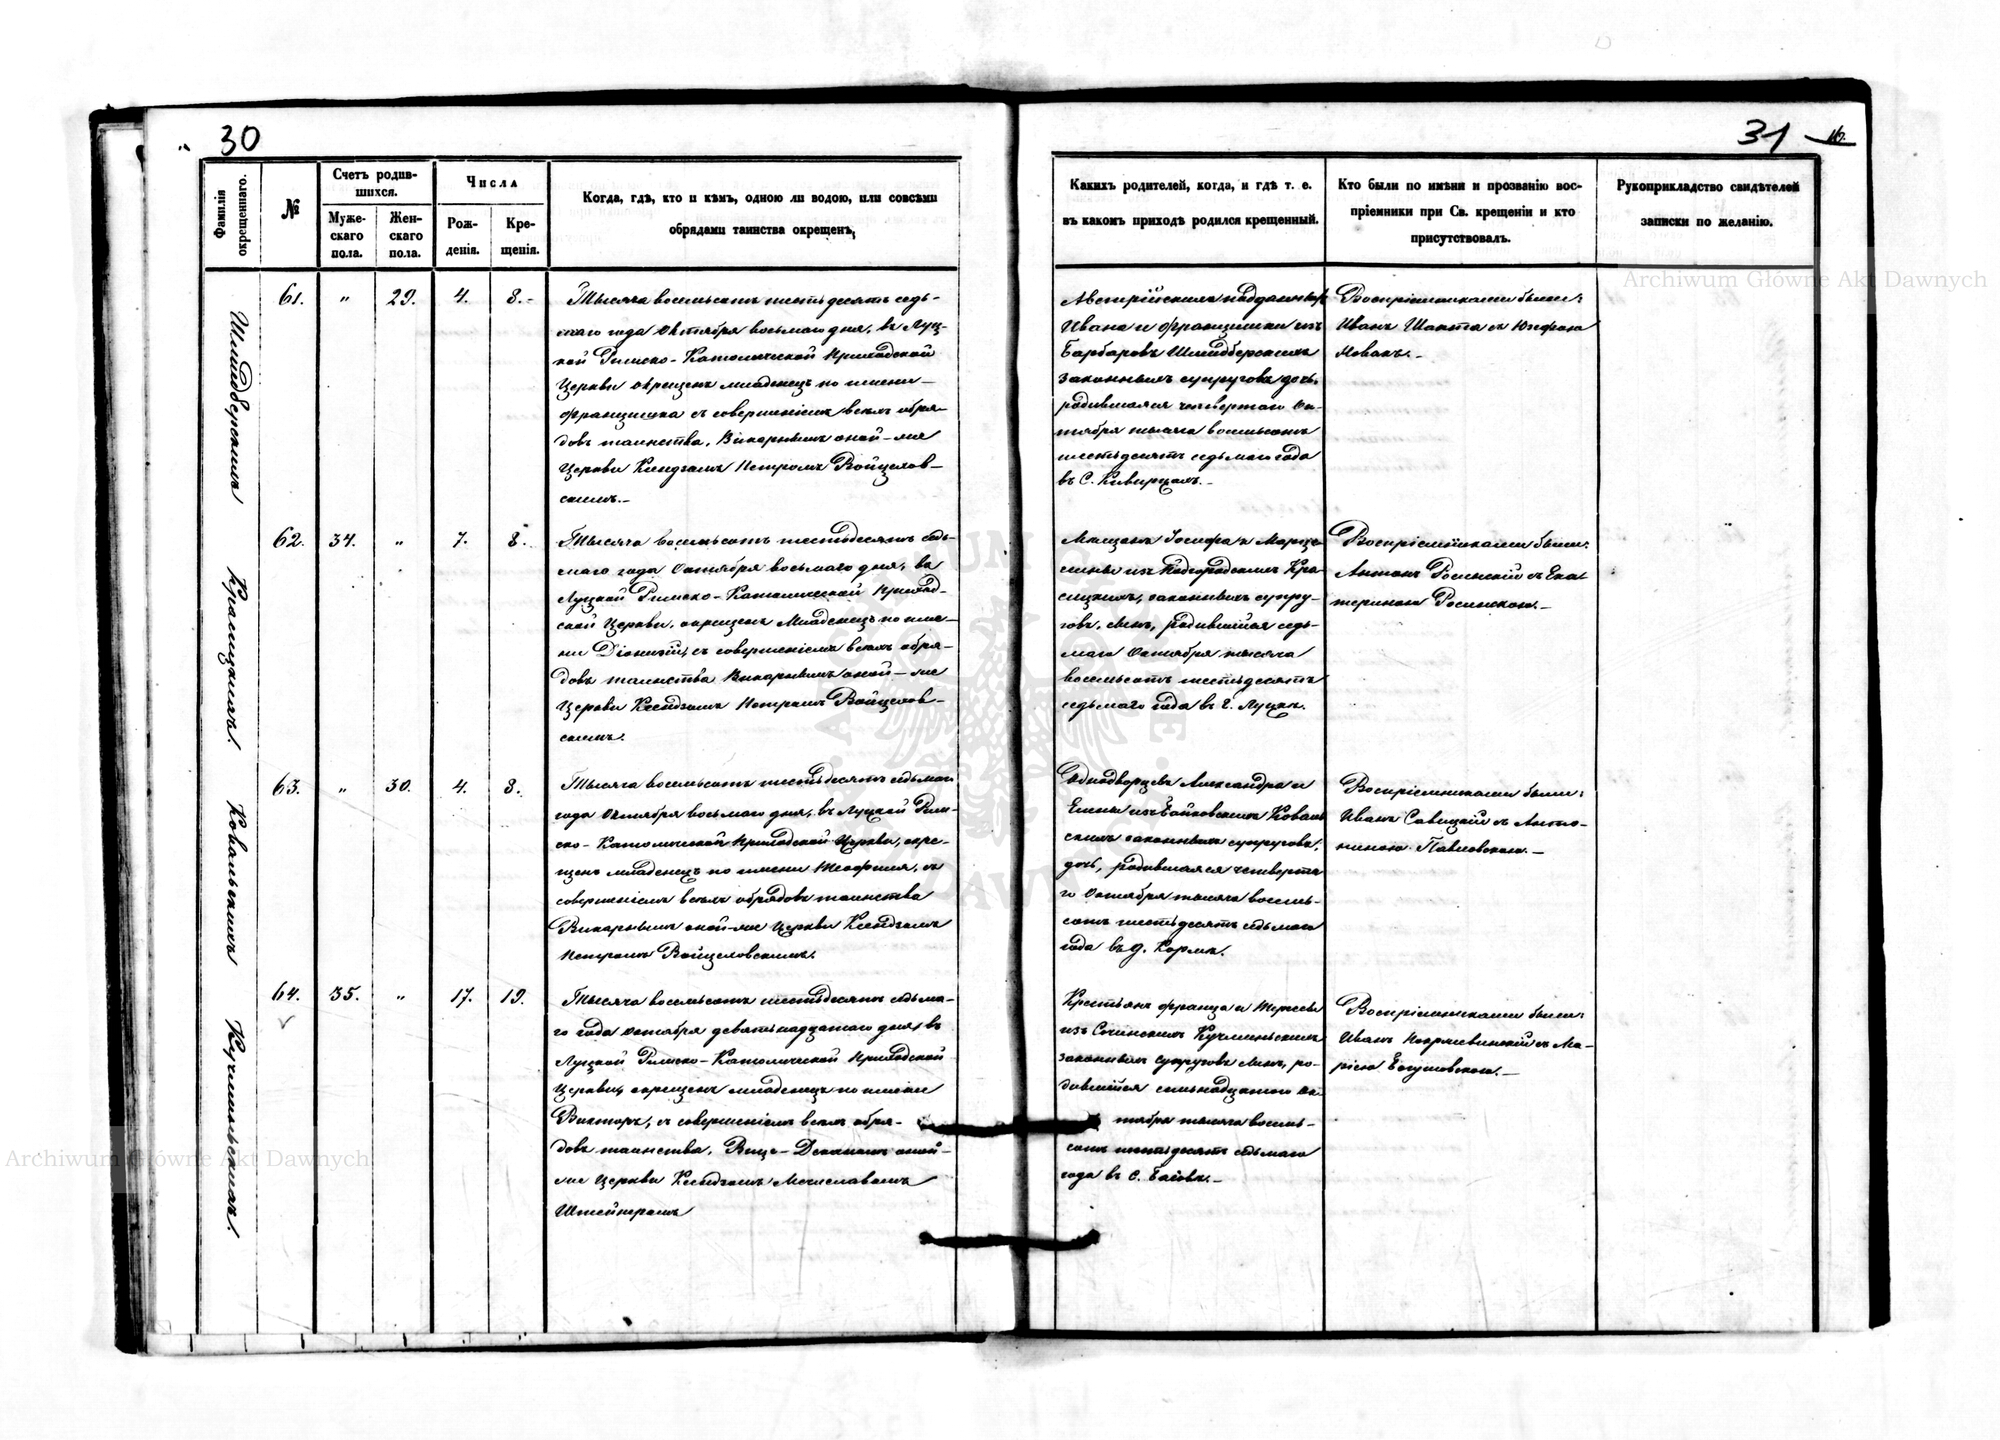 30
Фамилія
окрещеннаго.
№
Счетъ родив-
шихся.
Муже-
скаго
пола.
Жен-
скаго
пола.
Числа
Рож-
денія.
Кре-
щенія.
Когда, гдѣ, кто и кѣмъ, одною ли водою, или совсѣми
обрядами таинства окрещенъ,
31
Какихъ родителей, когда, и гдѣ т. е.
въ какомъ приходѣ родился крещенный.
Кто были по имѣни и прозванію вос-
пріемники при Св. крещеніи и кто
присутствовалъ.
Рукоприкладство свидѣтелей
записки по желанію.
61.
„
29.
4.
8.-
Тысяча восемьсотъ шестьдесятъ седь-
маго года Октября восьмаго дня, въ Луц-
кой Римско-Католической Приходской
Церкви окрещенъ младенецъ по имени
Францишка съ совершеніемъ всѣхъ обря-
довъ таинства, Викарнымъ оной-же
Церкви Ксендзомъ Петромъ Войцехов-
скимъ.-
Австрійскихъ подданныхъ
Ивана и Францишки изъ
законныхъ супруговъ дочь,
родившаяся четвертаго Ок-
тября тысяча восемьсотъ
шестьдесятъ седьмаго года
въ С. Киверцахъ.-
Воспріемниками были:
Иванъ Шахта съ Юзефою
Новакъ.-
62.
34.
„
7.
8.
Красицкихъ.
Тысяча восемьсотъ шестьдесятъ седь-
маго года Октября восьмаго дня, въ
Луцкой Римско-Католической Приход-
ской Церкви, окрещенъ Младенецъ по име-
ни Діонизій, съ совершеніемъ всѣхъ обря-
довъ таинства Викарнымъ оной-же
Церкви Ксендзомъ Петромъ Войцехов-
скимъ.
Мѣщанъ Іосифа и Марце-
лины изъ Подгородскихъ Кра-
сицкихъ, законныхъ супру-
говъ, сынъ, родившійся седь-
маго Октября тысяча
восемьсотъ шестьдесятъ
седьмаго года въ г. Луцкѣ.
Воспріемниками были:
Антонъ Росинскій съ Ека-
териною Росинскою.-
63.
„
30.
4.
8.
Ковальскихъ
Тысяча восемьсотъ шестьдесятъ седьмаго
года Октября восьмаго дня, въ Луцкой Рим-
ско-Католической Приходской Церкви, окре-
щенъ младенецъ по имени Теофилія, съ
совершеніемъ всѣхъ обрядовъ таинства
Викарнымъ оной-же Церкви Ксендзомъ
Петромъ Войцеховскимъ.
Однодворцевъ Александра и
Елены изъ Байковскихъ Коваль-
скихъ законныхъ супруговъ,
дочь, родившаяся четверта-
го Октября тысяча восемь-
сотъ шестьдесятъ седьмаго
года въ д. Кормѣ.
Воспріемниками были:
Иванъ Савицкій съ Анто-
ниною Павловскою.-
64.
35.
„
17.
19.
Кучминьскихъ.
Тысяча восемьсотъ шестьдесятъ седьма-
го года Октября девятьнадцатаго дня, въ
Луцкой Римско-Католической Приходской
Церкви, окрещенъ младенецъ по имени
Викторъ, съ совершеніемъ всѣхъ обря-
довъ таинства, Вице-Деканомъ оной-
же Церкви Ксендзомъ Мечиславомъ
Крестьянъ Франца и Терезы
изъ Сочинскихъ Кучминьскихъ
законныхъ супруговъ сынъ, ро-
дившійся семьнадцатаго Ок-
тября тысяча восемь-
сотъ шестьдесятъ седьмаго
года въ С. Баевѣ.-
Воспріемниками были:
рією Богушовскою.-
Archiwum Główne Akt Dawnych
Archiwum Główne Akt Dawnych